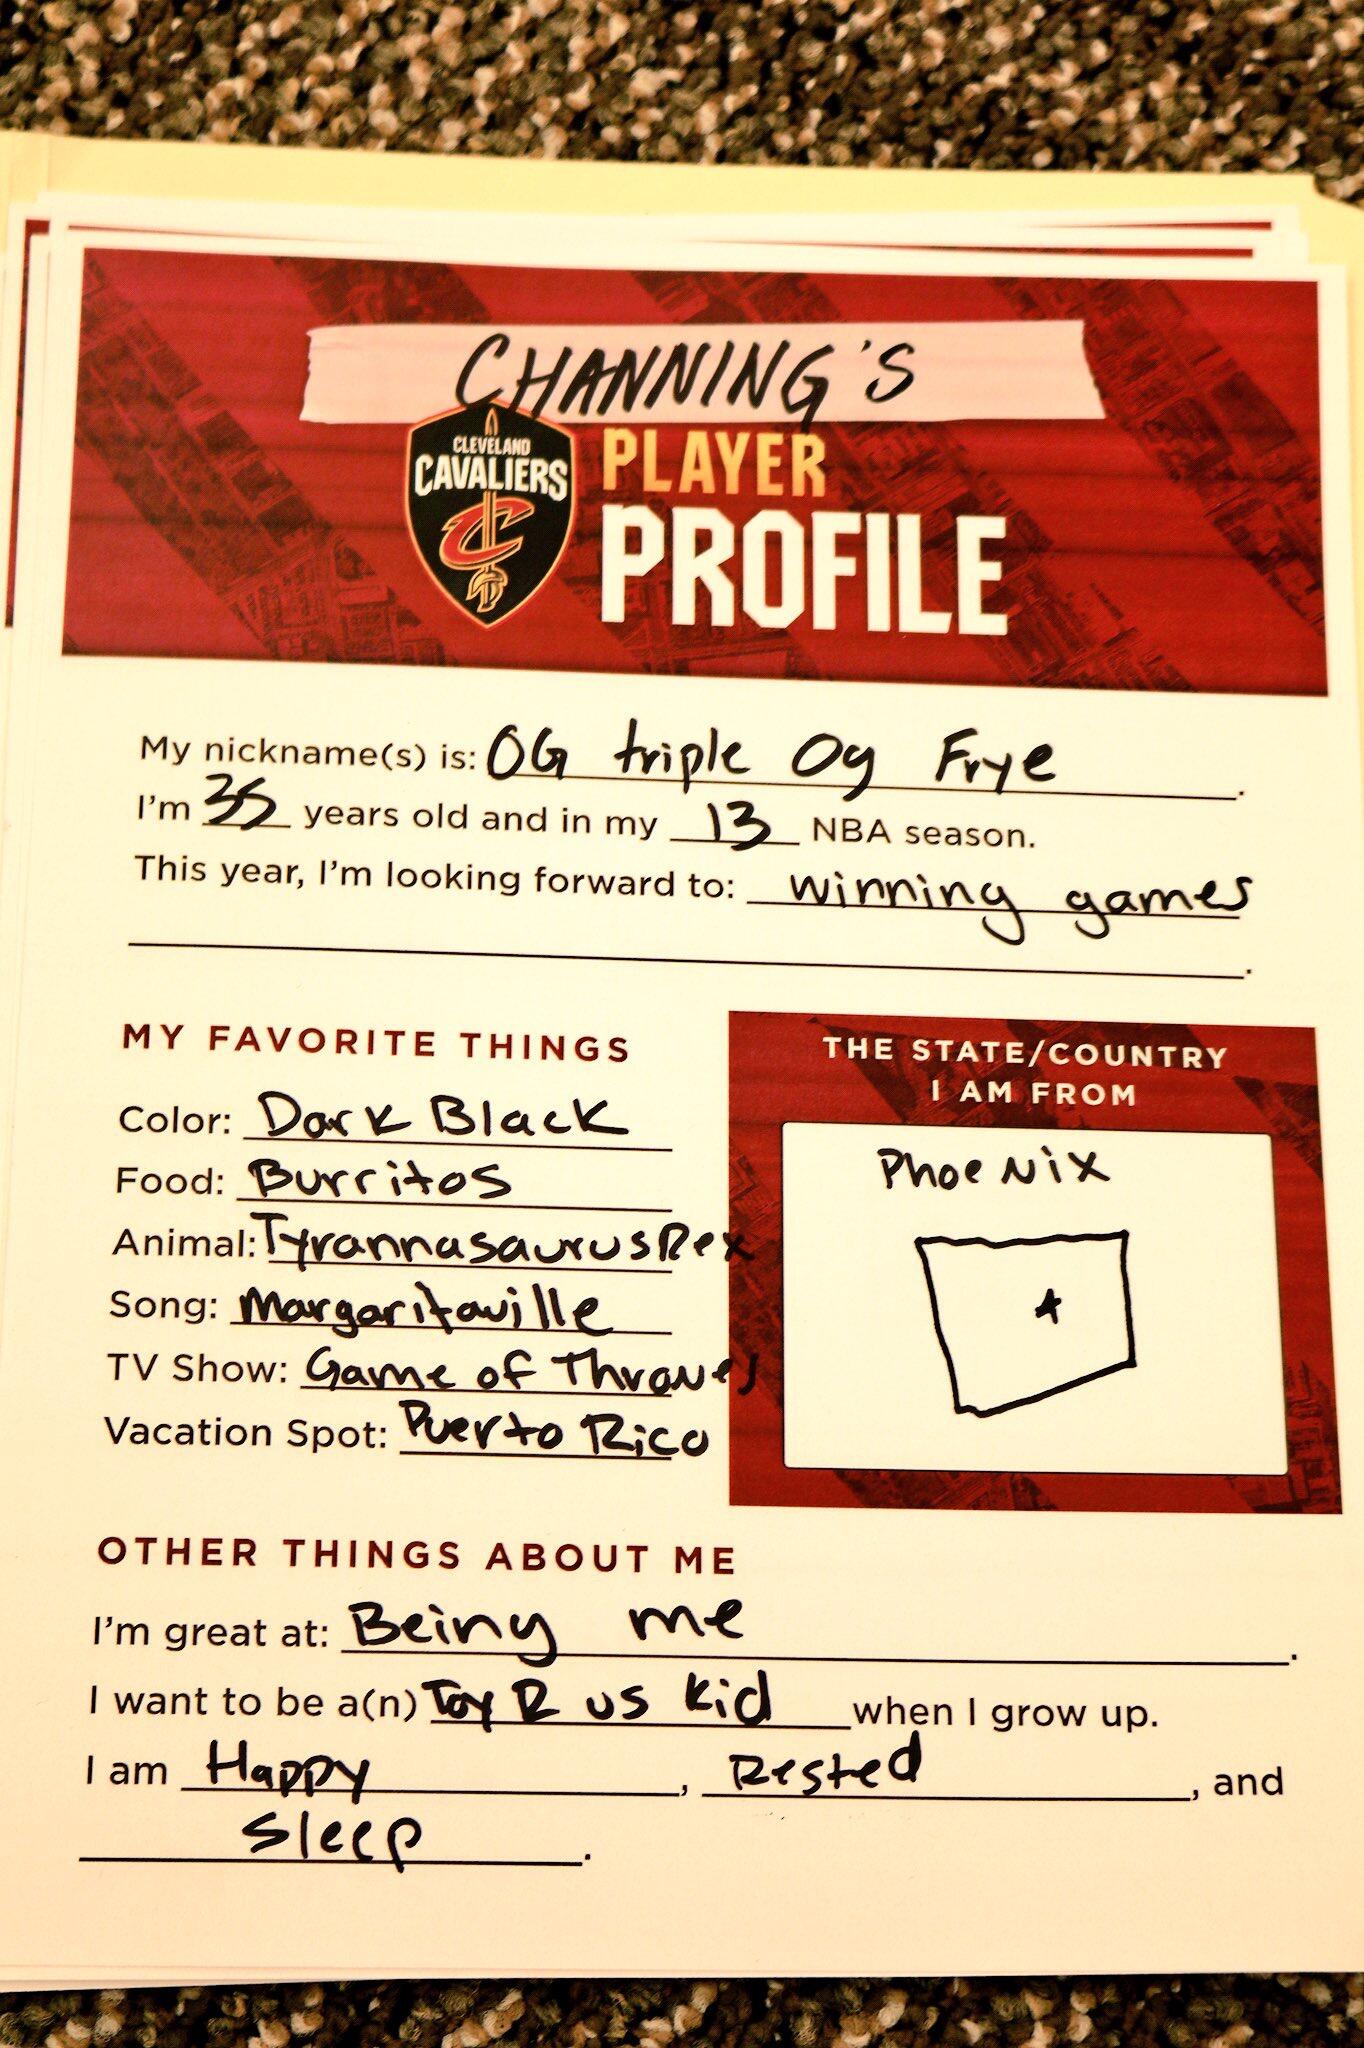 CHANNING'S
CLEVELAND
CAVALIERS
C
PLAYER
PROFILE
My nickname(s) is: OG triple Og Frye.
I'm 35 years old and in my 13 NBA season.
This year, I'm looking forward to: winning games
.
MY FAVORITE THINGS
Color: Dark Black
Food: Burritos
Animal: Tyrannasaurus Rex
Song: Margaritaville
TV Show: Game of Thrones
Vacation Spot: Puerto Rico
THE STATE/COUNTRY
I AM FROM
Phoenix
OTHER THINGS ABOUT ME
I'm great at: Being me.
I want to be a(n) Toy R us kid when I grow up.
I am Happy, Rested, and
Sleep.